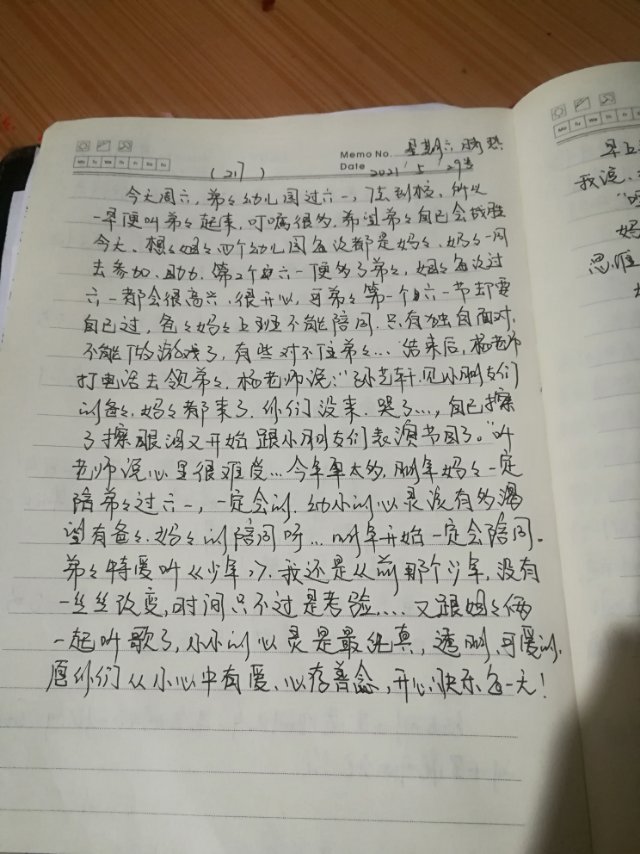 Memo No. 星期六 晴
(217) Date 2021 5 29
今天周六,弟々幼儿园过六一,7点到校,所以
一早便叫弟々起来,叮嘱很多,希望弟々自己会战胜
今天、想々姐々四个幼儿园每次都是妈々、妈々一同
去参加、助力、第2个六一便多了弟々,姐々每次过
六一都会很高兴、很开心,可弟々第一个六一节却要
自己过,爸々妈々上班不能陪同、只有独自面对、
不能做游戏了,有些对不住弟々...结束后,杨老师
打电话去领弟々,杨老师说:"孙艺轩见小朋友们
的爸々、妈々都来了、你们没来、哭了...,自已擦
了擦眼泪又开始跟小朋友们表演节目了。"听
老师说心里很难受...今年事太多,明年妈々一定
陪弟々过六一,一定会的、幼小的心灵该有多渴
望有爸々、妈々的陪同呀...明年开始一定会陪同。
弟々特爱听《少年》,我还是从前那个少年,没有
一丝丝改变,时间只不过是考验....又跟姐々俩
一起听歌了,小小的心灵是最纯真,透明,可爱的、
愿你们从小心中有爱、心存善念,开心快乐每一天!
早上
我说、
妈
思维